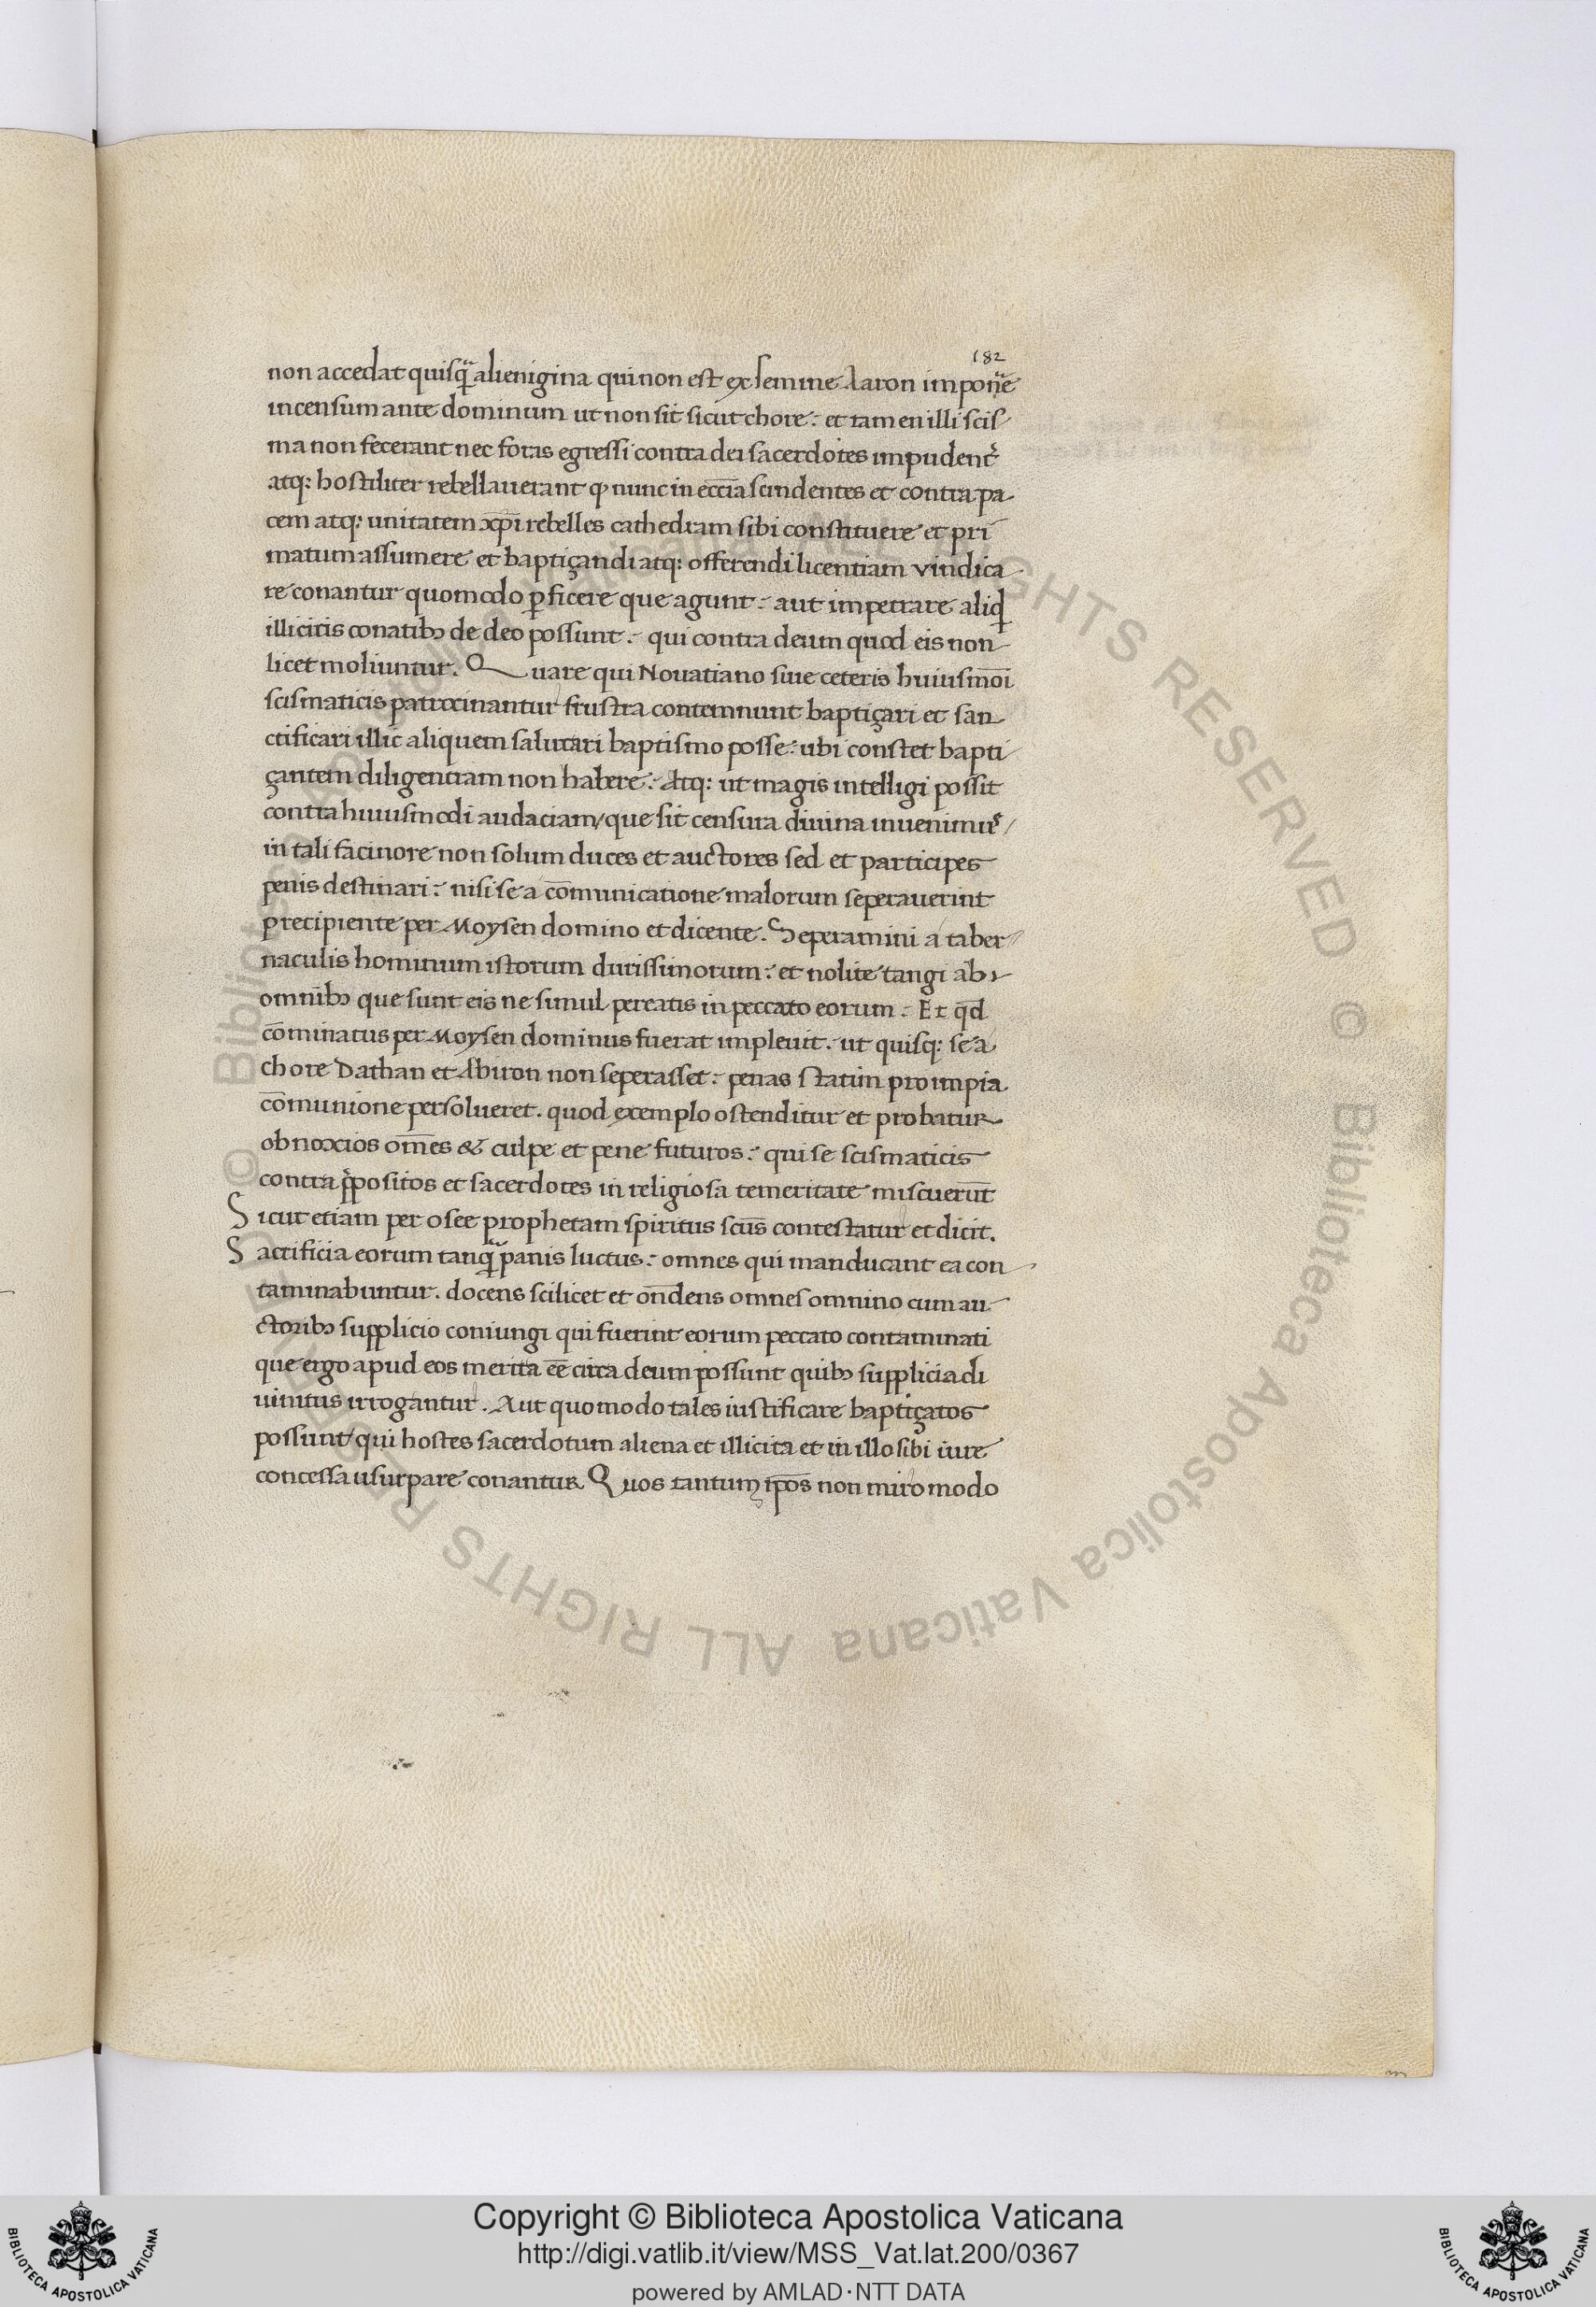 182
non accedat quisq̃ alienigina qui non est ex semine Aaron imponẽ
incensum ante dominum ut non sit sicut chore: et tamen illi scis
ma non fecerant nec foras egressi contra dei sacerdotes impudent̃
atq: hostiliter rebellauerant ꝙ nunc in eccĩa scindentes et contra pa
cem atq: unitatem xp̃i rebelles cathedram sibi constituere et pri
matum assumere et baptiçandi atq: offerendi licentiam vindica
re conantur quomodo ꝑficere que agunt: aut impetrare aliq̃
illicitis conatibꝫ de deo possunt: qui contra deum quod eis non
licet moliuntur. Quare qui Nouatiano siue ceteris huiusmõi
scismaticis patrocinantur frustra contemnunt baptiçari et san
ctificari illic aliquem salutari baptismo posse: ubi constet bapti
çantem diligentiam non habere: Atq: ut magis intelligi possit
contra huiusmodi audaciam/que sit censura diuina inuenimuˢ/
in tali facinore non solum duces et auctores sed et participes
penis destinari: nisi se a cõmunicatione malorum seperauerint
precipiente per Moysen domino et dicente. Seperamini a taber
naculis hominum istorum durissimorum: et nolite tangi ab
omnibꝫ que sunt eis ne simul pereatis in peccato eorum: Et qđ
cõminatus per Moysen dominus fuerat impleuit. ut quisq: se a
chore Dathan et Abiron non seperasset: penas statim pro impia
cõmunione persolueret. quod exemplo ostenditur et probatur
obnoxios om̃es & culpe et pene futuros: qui se scismaticis
contra p̃positos et sacerdotes in religiosa temeritate miscuerũt
Sicut etiam per osee prophetam spiritus scũs contestatur et dicit.
Sacrificia eorum tanq̃ panis luctus: omnes qui manducant ea con
taminabuntur. docens scilicet et oñdens omnes omnino cum au
ctoribꝫ supplicio coniungi qui fuerint eorum peccato contaminati
que ergo apud eos merita eẽ circa deum possunt quibꝫ supplicia di
uinitus irrogantur. Aut quomodo tales iustificare baptiçatos
possunt qui hostes sacerdotum aliena et illicita et in illo sibi iure
concessa usurpare conantur Quos tantum ip̃os non miro modo
Copyright © Biblioteca Apostolica Vaticana
http://digi.vatlib.it/view/MSS_Vat.lat.200/0367
powered by AMLAD·NTT DATA
BIBLIOTECA APOSTOLICA VATICANA
BIBLIOTECA APOSTOLICA VATICANA
© Biblioteca Apostolica Vaticana ALL RIGHTS RESERVED © Biblioteca Apostolica Vaticana ALL RIGHTS RESERVED